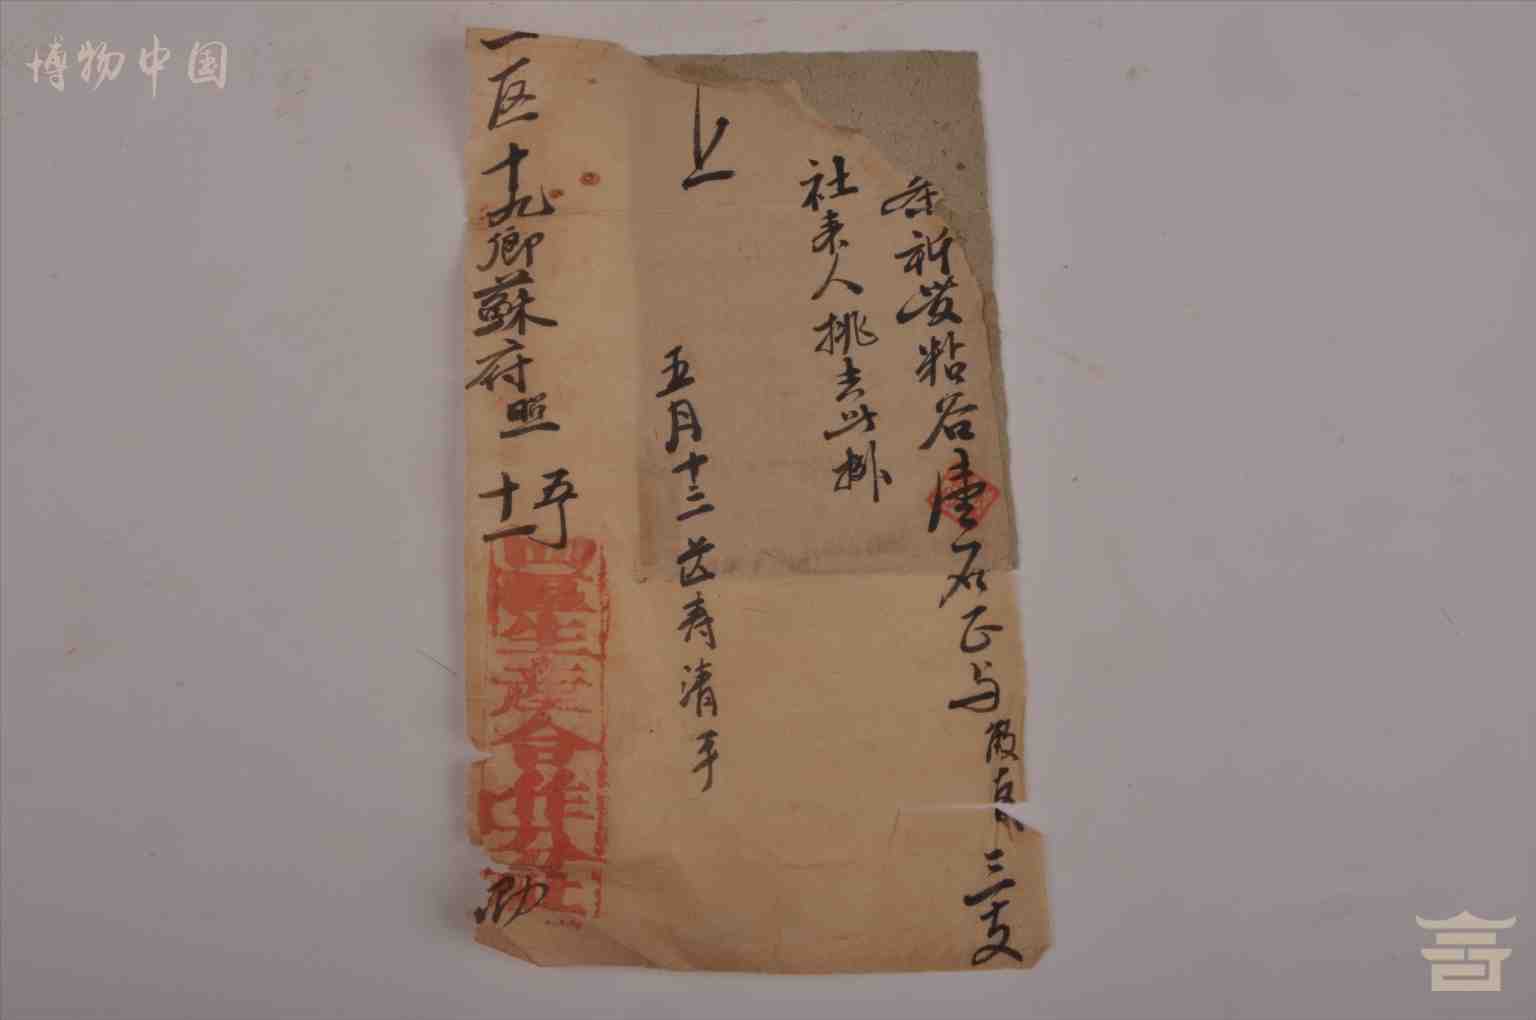 博物中国
条祈发粘谷壹石正与
三支
社来人挑去此挑
上
五月十二 寿清平
一区十九乡苏府照
十一
四区生产合作分社